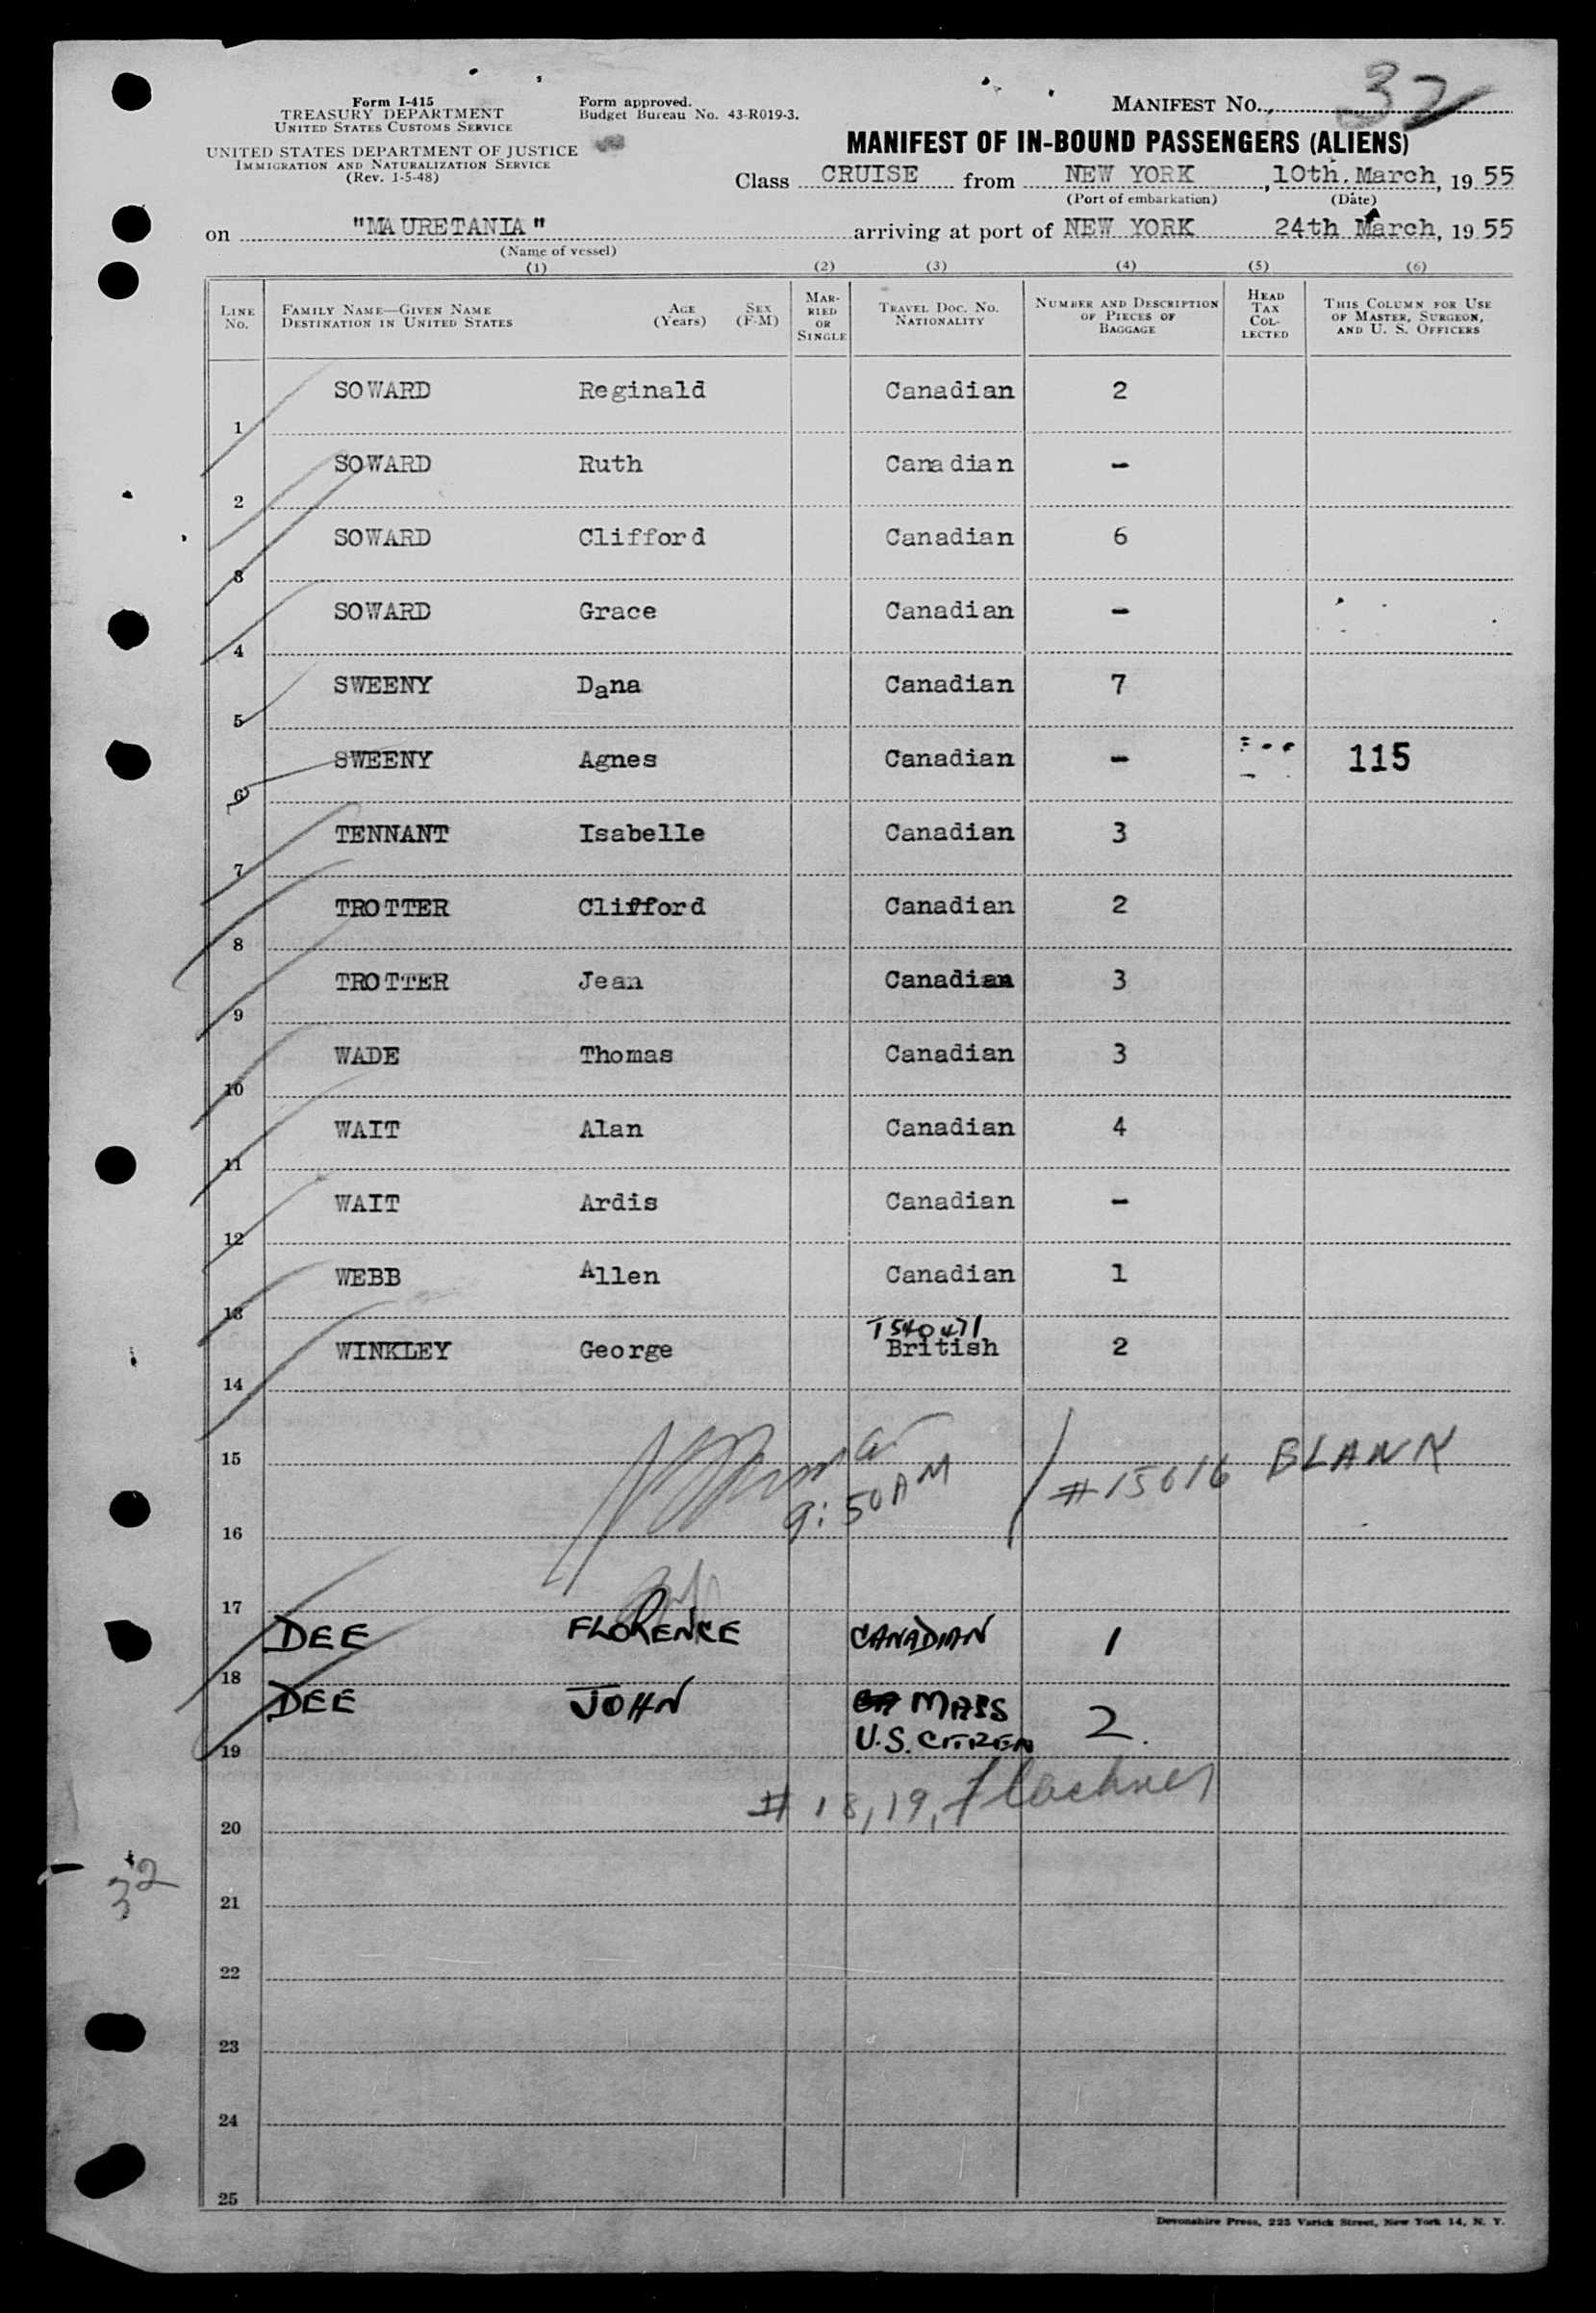 Form I-415
TREASURY DEPARTMENT
UNITED STATES CUSTOMS SERVICE
UNITED STATES DEPARTMENT OF JUSTICE
IMMIGRATION AND NATURALIZATION SERVICE
(Rev. 1-5-48)
Form approved.
Budget Bureau No. 43-R019-3.
MANIFEST NO. 32
MANIFEST OF IN-BOUND PASSENGERS (ALIENS)
Class CRUISE from NEW YORK, 10th. March, 19 55
(Port of embarkation) (Date)
on "MAURETANIA" arriving at port of NEW YORK 24th March, 19 55
(Name of vessel)
(1) (2) (3) (4) (5) (6)
LINE NO. FAMILY NAME—GIVEN NAME DESTINATION IN UNITED STATES AGE (Years) SEX (F-M) MARRIED OR SINGLE TRAVEL DOC. NO. NATIONALITY NUMBER AND DESCRIPTION OF PIECES OF BAGGAGE HEAD TAX COLLECTED THIS COLUMN FOR USE OF MASTER, SURGEON, AND U. S. OFFICERS
1 SOWARD Reginald Canadian 2
2 SOWARD Ruth Canadian -
3 SOWARD Clifford Canadian 6
4 SOWARD Grace Canadian -
5 SWEENY Dana Canadian 7
6 SWEENY Agnes Canadian - 115
7 TENNANT Isabelle Canadian 3
8 TROTTER Clifford Canadian 2
9 TROTTER Jean Canadian 3
10 WADE Thomas Canadian 3
11 WAIT Alan Canadian 4
12 WAIT Ardis Canadian -
13 WEBB Allen Canadian 1
T540471
14 WINKLEY George British 2
15
9:50 AM #15616 BLANK
16
17
18 DEE FLORENCE CANADIAN 1
19 DEE JOHN MASS U.S. CITIZEN 2
# 18, 19,
20
32
21
22
23
24
25
Devonshire Press, 225 Varick Street, New York 14, N. Y.